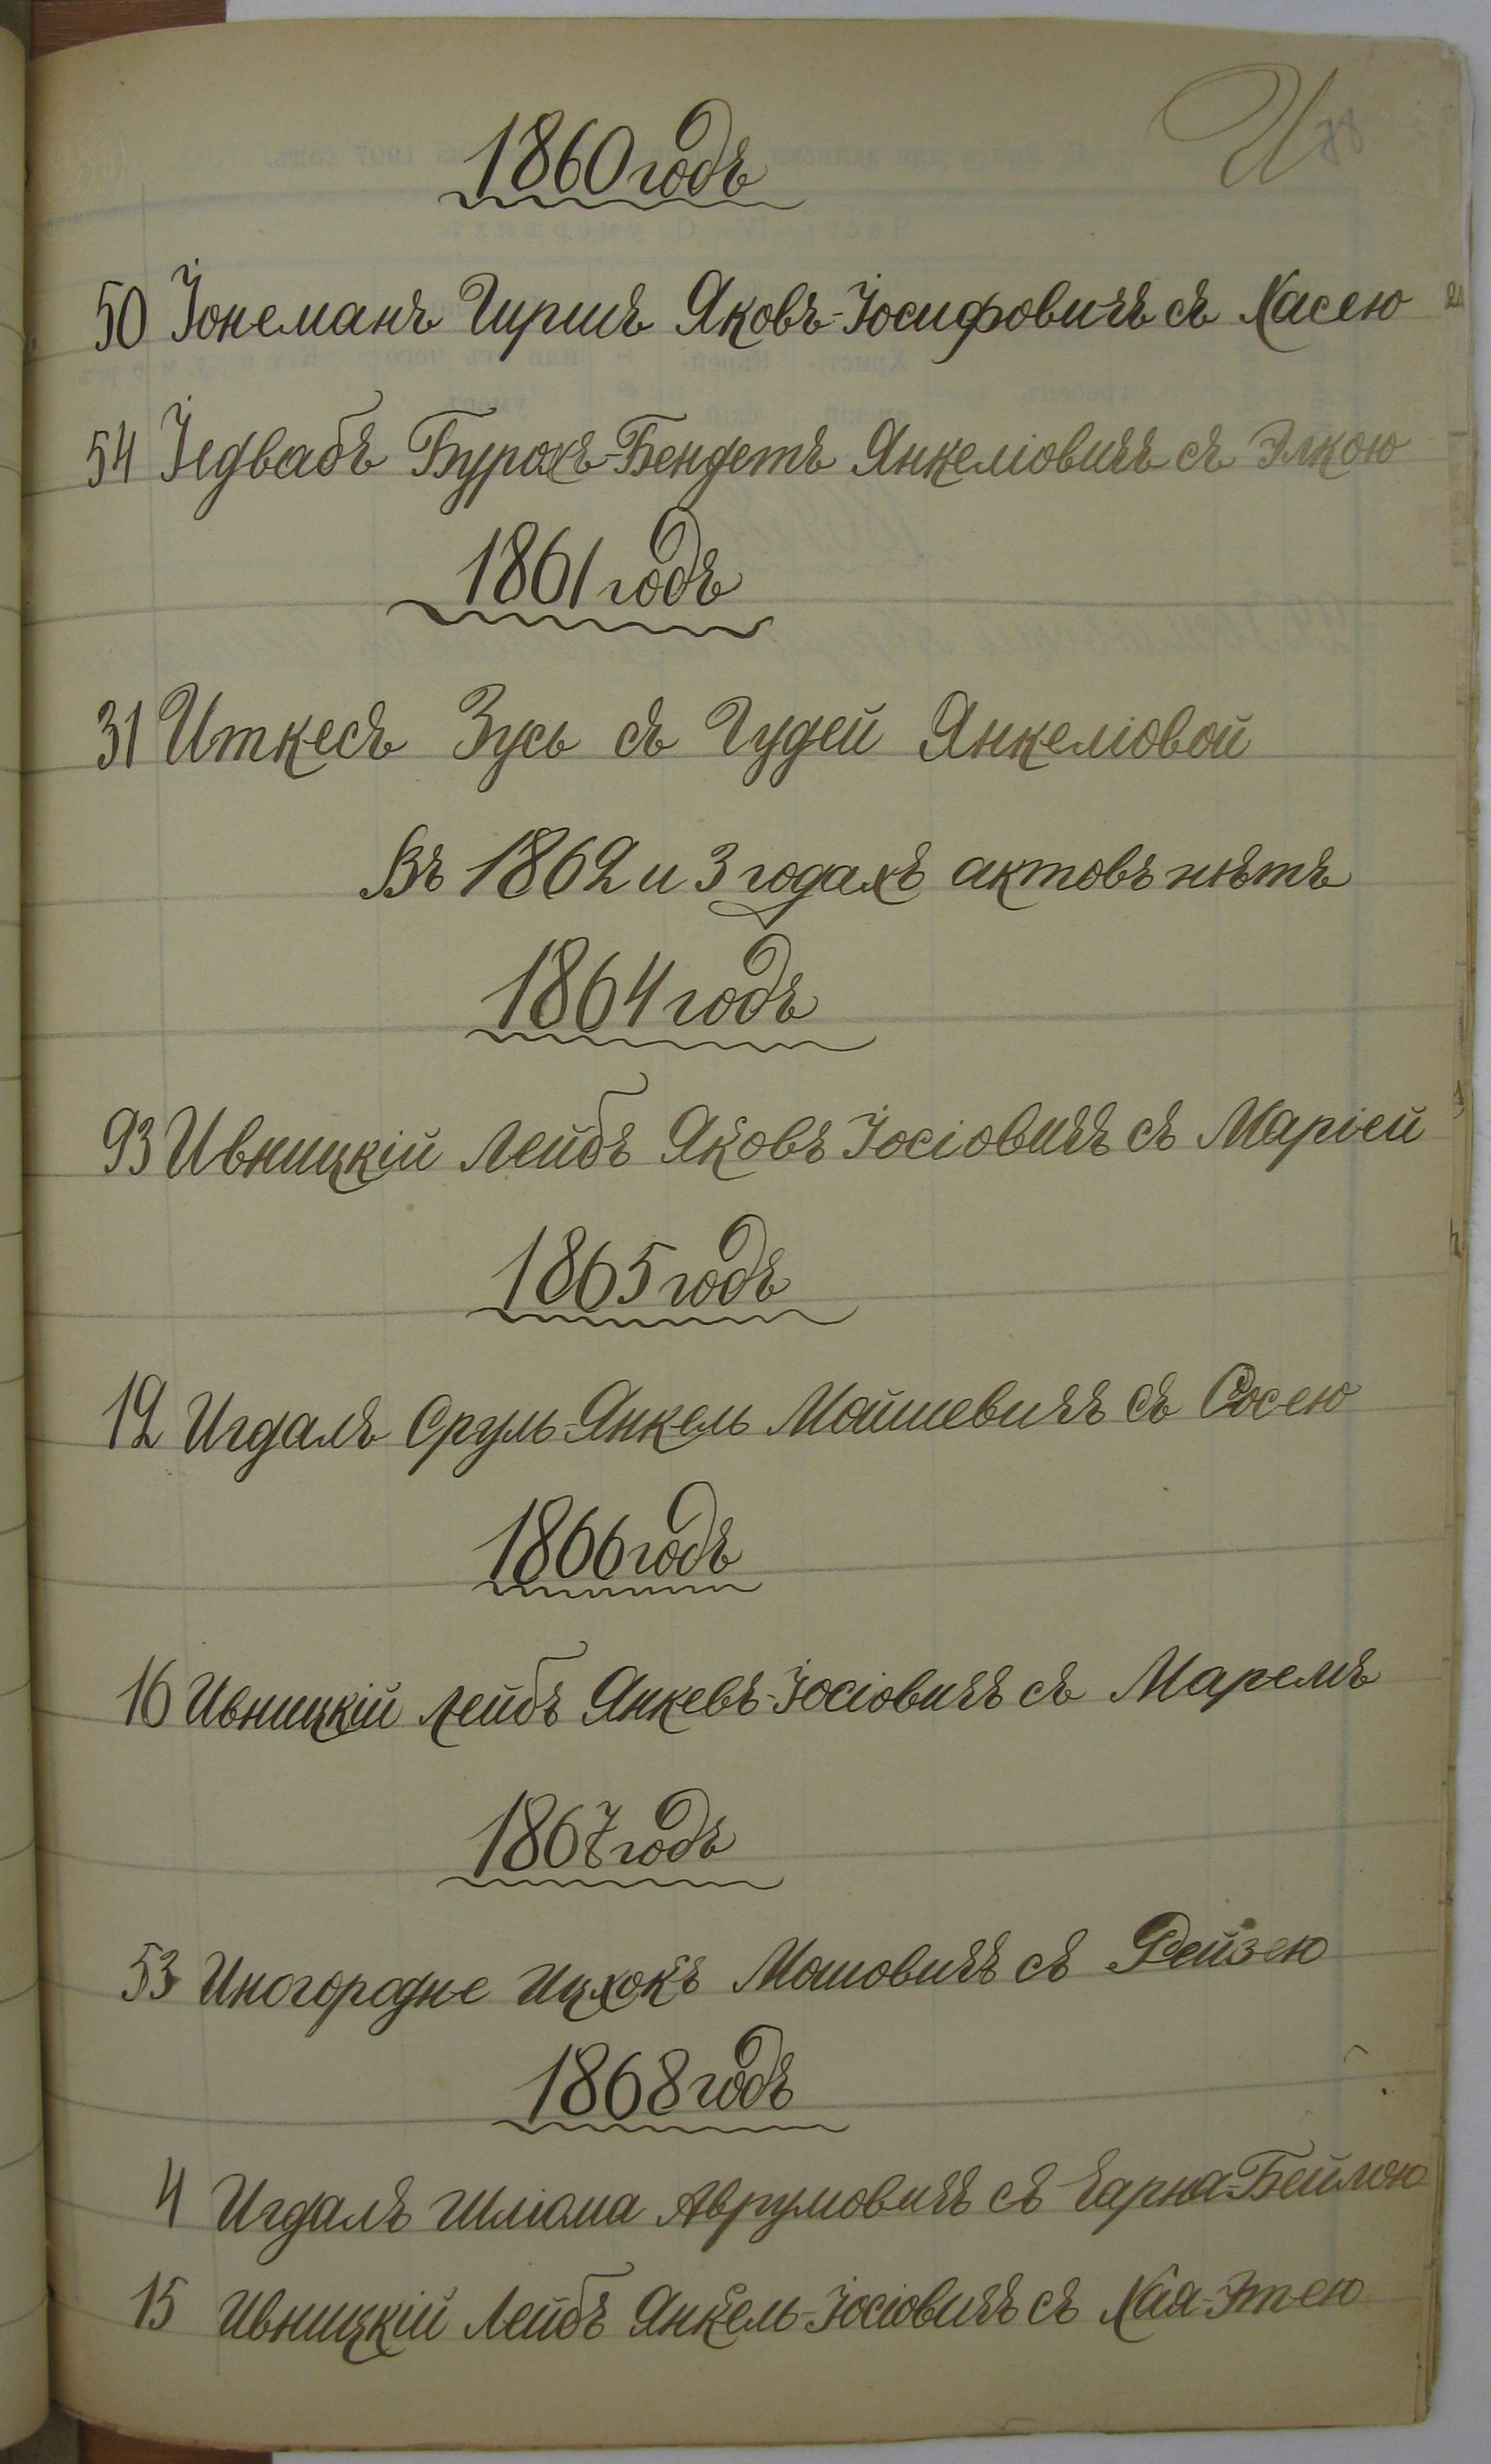 И
1860 годъ
50 Іонеманъ Гиршъ Яковъ-Іосифовичъ съ Хасею
54 Іедвабъ Бурохъ-Бендетъ Янкеліовичъ съ Элкою
1861 годъ
31 Иткесъ Зусь съ Гудей Янкеліовой
Въ 1862 и 3 годахъ актовъ нѣтъ
1864 годъ
93 Ивницкій Лейбъ Яковъ Іосіовичъ съ Маріей
1865 годъ
12 Игдалъ Сруль-Янкель Мойшевичъ съ Сосею
1866 годъ
16 Ивницкій Лейбъ Янкевъ-Іосіовичъ съ Маремъ
1867 годъ
53 Иногородне Ицхокъ Мошовичъ съ Рейзею
1868 годъ
4 Игдалъ Шліома Аврумовичъ съ Чарна-Бейлою
15 Ивницкій Лейбъ Янкель-Іосіовичъ съ Хая-Этею